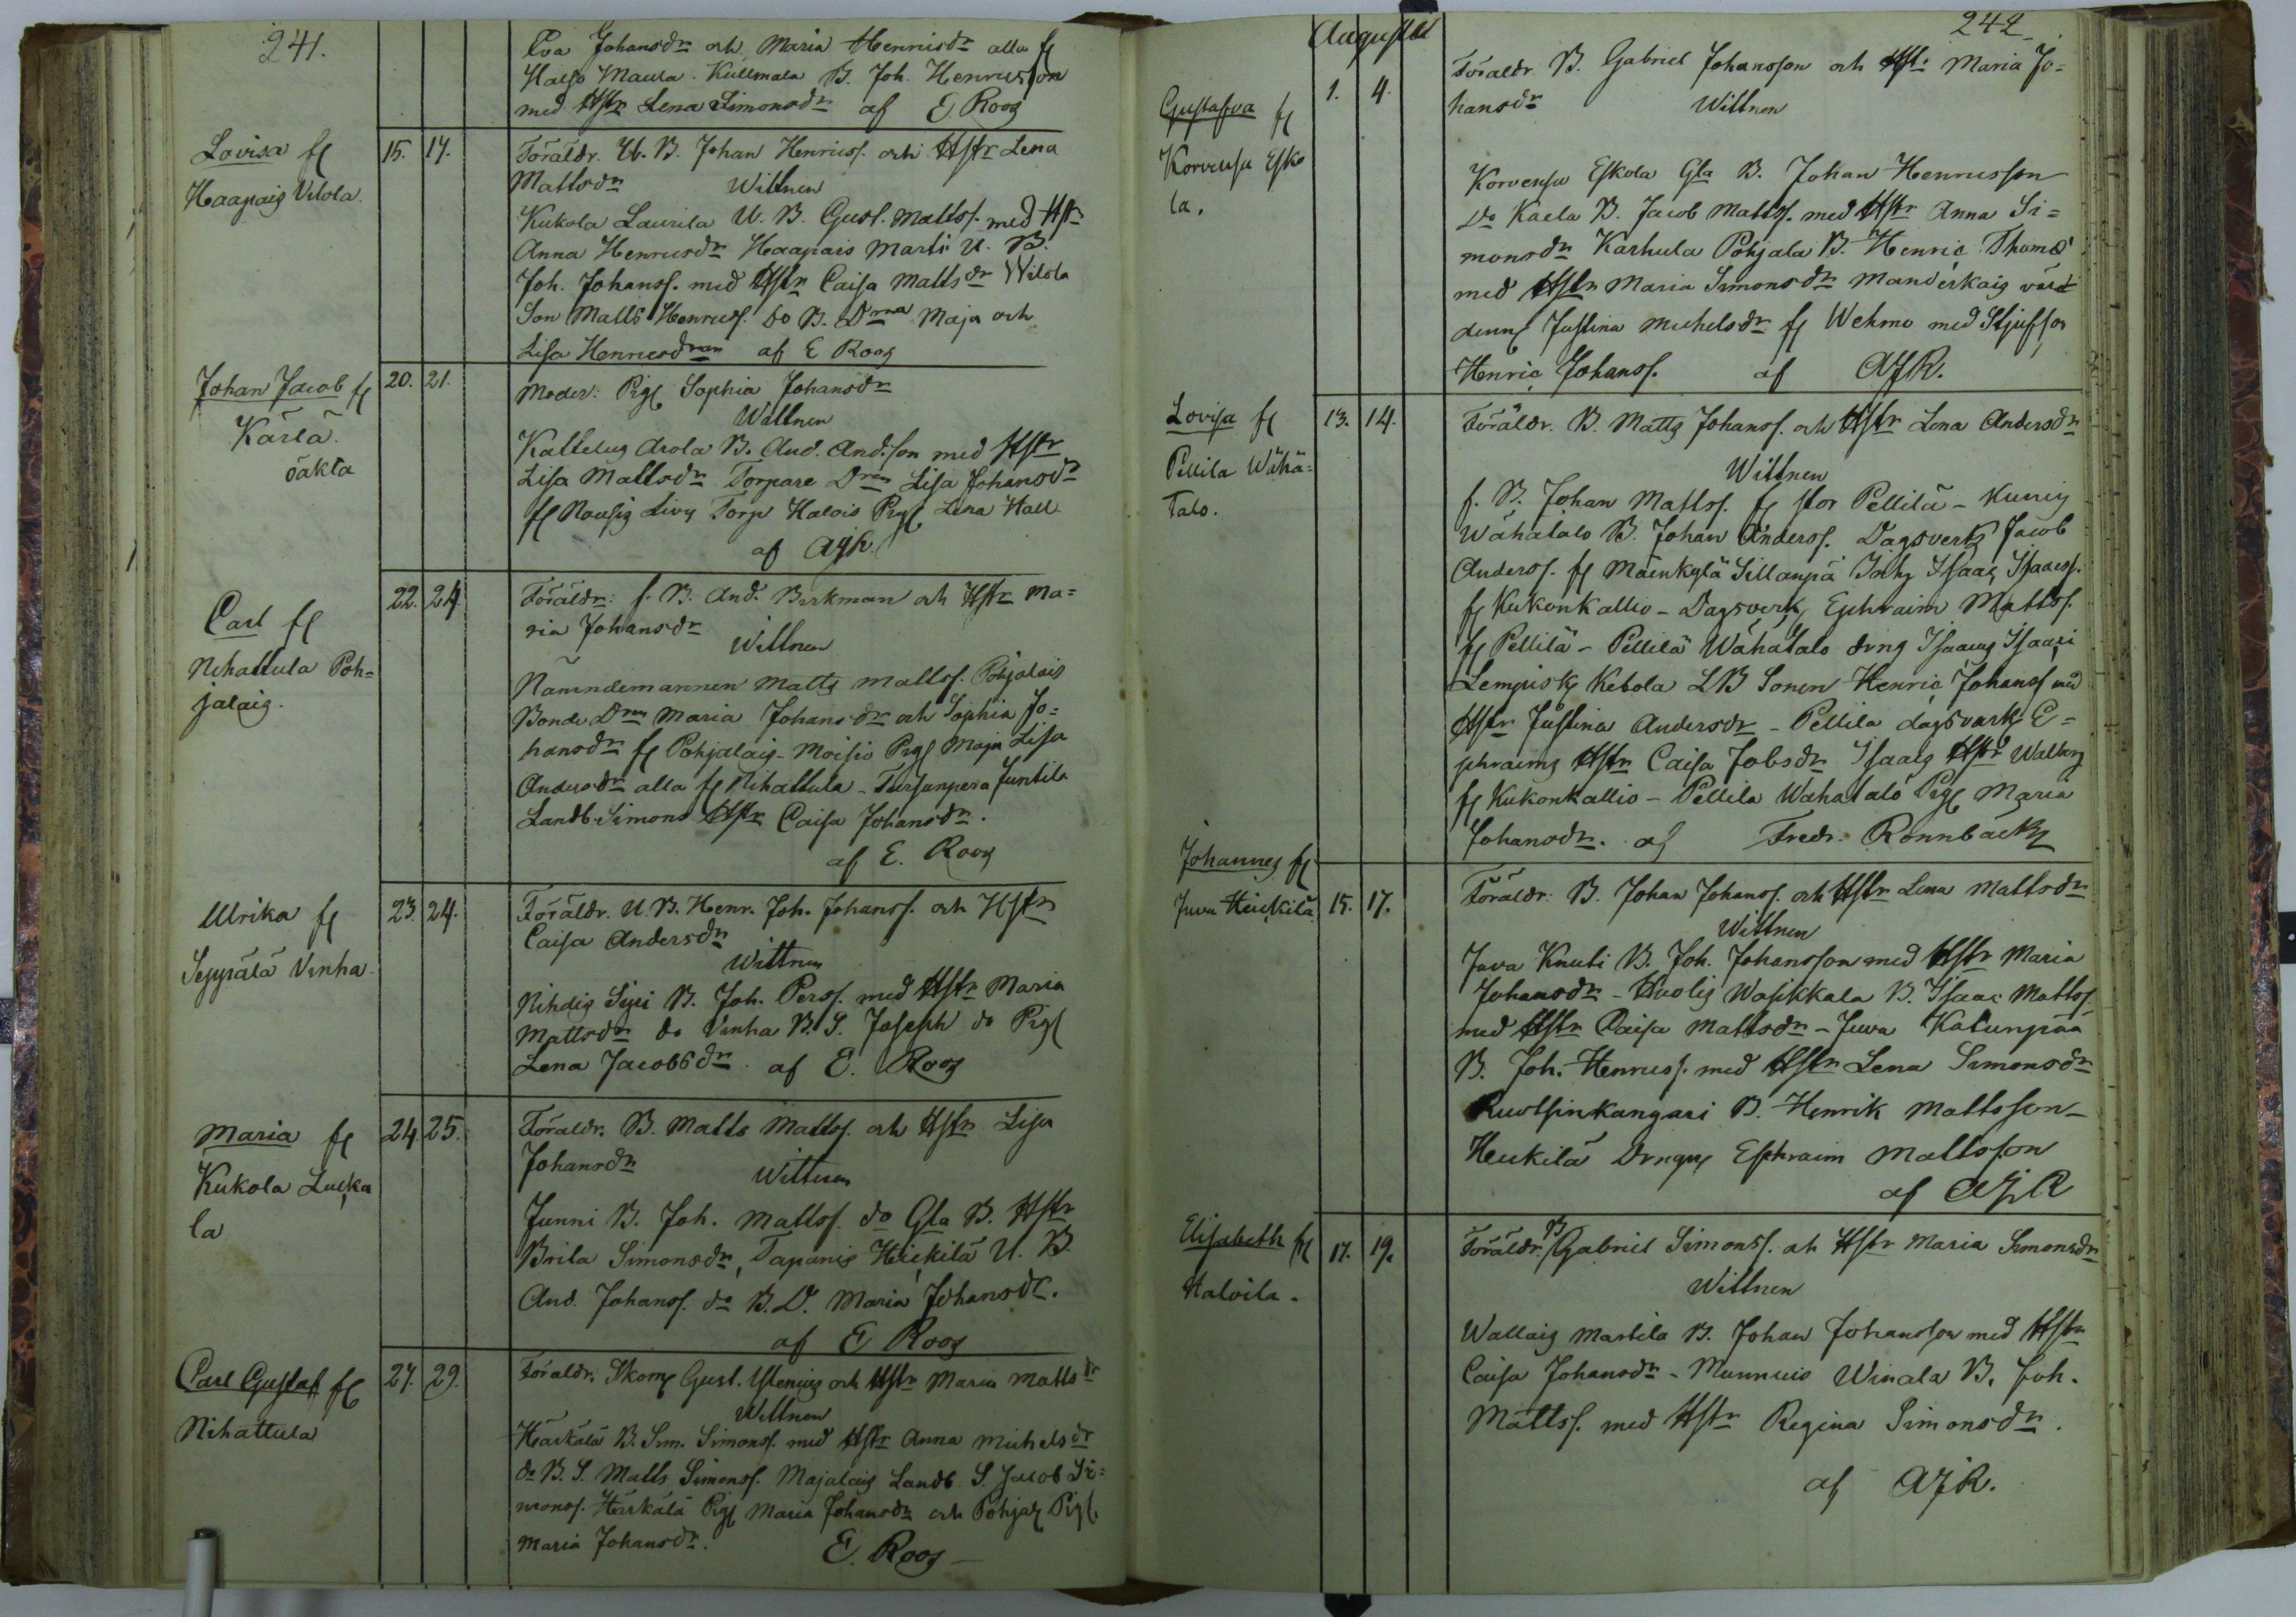 241.
Eva Johansdr och Maria Henricsdr alla fr
Halso Maula. Kullmala B. Joh. Henricsson
med Hstr Lena Simonsdr af E. Roos
Lovisa fr
Haapais Vilola.
15. 17.
Föräldr. U. B. Johan Henricss. och Hstr Lena
Mattsdr Wittnen
Kukola Laurila U. B. Gust. Mattss. med Hstr
Anna Henricsdr Haapais Marti U. B.
Joh. Johanss. med Hstr Caisa Mattsdr Wilola
Son Matts Henricss. do B. Drna Maja och
Lisa Henricsdran af E Roos
Johan Jacob fr
Kärlä.
oäkta
20. 21.
Moder: Pig. Sophia Johansdr
Wittnen
Kallelus Arola B. And. And.son med Hstr
Lisa Mattsdr Torpare Dren Lisa Johansdr
fr Nousis Torp Halois Pig. Lena Hall
af AJR.
Carl fr
Nihattula Poh=
jalais.
22. 24.
Föräldr: f. B. And. Birkman och Hstr Ma=
ria Johansdr
Wittnen
Nämndemannen Matts Mattss. Pohjalais
Bonde Dren Maria Johansdr och Sophia Jo=
hansdr fr Pohjalais - Moisio Pig. Maja Lisa
Andersdr alla fr Nihattula - Tursunpera Juntila
Landb. Simons Hstr Caisa Johansdr.
af E. Roos
Ulrika fr
Seppälä Vinha.
23. 24.
Föräldr. U. B. Henr. Joh. Johanss. och Hstr
Caisa Andersdr
Wittnen
Nihdis Sipi B. Joh. Perss. med Hstr Maria
Mattsdr do Vinha B. S. Joseph do Pig.
Lena Jacobsdr. af E. Roos
Maria fr
Kukola Lucka
la
24. 25.
Föräldr. B. Matts Mattss. och Hstr Lisa
Johansdr
Wittnen
Junni B. Joh. Mattss. do Gla B. Hstr
Brita Simonsdr, Tapanis Heickilä U. B.
And. Johanss. do B. D. Maria Johansdr.
af E Roos
Carl Gustaf fr
Nihattula
27. 29.
Föräldr. Skom. Gust. Ustenius och Hstr Maria Mattsdr
Wittnen
Härkälä B. Sim. Simonss. med Hstr Anna Michelsdr
do B. S. Matts Simonss. Majalais Landb. S. Jacob Si=
monss. Härkälä Pig. Maria Johansdr och Pohjal. Pig.
Maria Johansdr.
E. Roos
Augusti
242
Gustafva fr
Korvensu Esko
la.
1. 4.
Föräldr. B. Gabriel Johansson och Hstr. Maria Jo=
hansdr Wittnen
Korvensu Eskola Gla B. Johan Henricsson
Do Kaela B. Jacob Mattss. med Hstr Anna Si=
monsdr Karhula Pohjala B. Henric Thomæ
med Hstr Maria Simonsdr Manderkais värd
Justina Michelsdr fr Wehmo med Stjufson
Henric Johanss. af AJR.
Lovisa fr
Pellilä Wähä=
Talo.
13. 14.
Föräldr. B. Matts Johanss. och Hstr Lena Andersdr
Wittnen
f. B. Johan Mattss. fr Stor Pellilä - Kunis
Wähätalo B. Johan Anderss. Dagsverk. Jacob
Anderss. fr Mäenkylä Sillanpä Inh. Isaac Isaacss.
fr Kukonkallio - Dagsverk. Ephraim Mattss.
fr Pellilä - Pellilä Wähätalo drng Isaac
Lempisk. Ketola LB Sonen Henric Johanss med
Hstr Justina Andersdr - Pellilä dagsvark. E=
phraims Hstr Caisa Jobsdr Isaacs Hstr Walborg
fr Kukonkallio - Pellilä Wähätalo Pig. Maria
Johansdr. af Fredr. Rönnbäck
Johannes fr
Juva Heickilä
15. 17.
Föräldr. B. Johan Johanss. och Hstr Lena Mattsdr
Wittnen
Juva Knuti B. Joh. Johansson med Hstr Maria
Johansdr - Huolis Wapikkala B. Isaac Mattss.
med Hstr Caisa Mattsdr - Juva Katunpää
B. Joh. Henricss. med Hstr Lena Simonsdr
Ruotsinkangari B. Henrik Mattsson
Heikilä Drngn Ephraim Mattsson
af AJR
Elisabeth fr
Halvila.
17. 19.
Föräldr. B Gabriel Simonss. och Hstr Maria Simonsdr
Wittnen
Wallais Martila B. Johan Johansson med Hstr
Caisa Johansdr - Munnuis Winala B. Joh.
Mattss. med Hstr Regina Simonsdr.
af AJR.